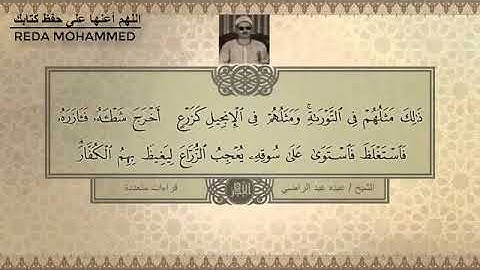 اللهم أعنها على حفظ كتابك
REDA MOHAMMED
ذَٰلِكَ مَثَلُهُمْ فِي ٱلتَّوْرَىٰةِ ۚ وَمَثَلُهُمْ فِي ٱلْإِنجِيلِ كَزَرْعٍ أَخْرَجَ شَطْـَٔهُۥ فَـَٔازَرَهُۥ
فَٱسْتَغْلَظَ فَٱسْتَوَىٰ عَلَىٰ سُوقِهِۦ يُعْجِبُ ٱلزُّرَّاعَ لِيَغِيظَ بِهِمُ ٱلْكُفَّارَ
الشيخ / عبده عبد الراضي
قراءات متعددة